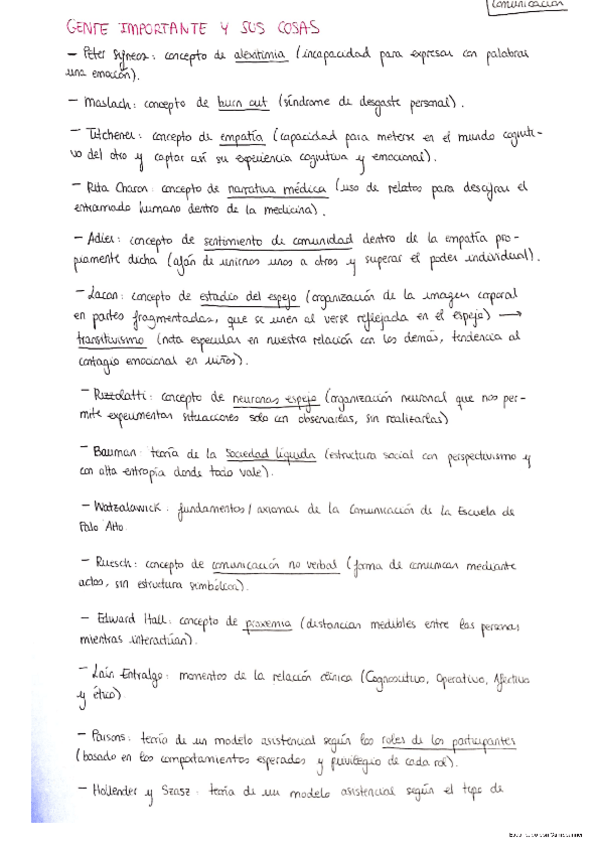 Comunicación
GENTE IMPORTANTE Y SUS COSAS
- Peter Sifneos: concepto de alexitimia (incapacidad para expresar con palabras
una emoción).
- Maslach: concepto de burn out (síndrome de desgaste personal).
- Titchener: concepto de empatía (capacidad para meterse en el mundo cogniti-
vo del otro y captar así su experiencia cognitiva y emocional).
- Rita Charon: concepto de narrativa médica (uso de relatos para descifrar el
entramado humano dentro de la medicina).
- Adler: concepto de sentimiento de comunidad dentro de la empatía pro-
piamente dicha (afán de unirnos unos a otros y superar el poder individual).
- Lacan: concepto de estadío del espejo (organización de la imagen corporal
en partes fragmentadas, que se unen al verse reflejada en el espejo) →
transitivismo (nota especular en nuestra relación con los demás, tendencia al
contagio emocional en niños).
- Rizzolatti: concepto de neuronas espejo (organización neuronal que nos per-
mite experimentar situaciones solo con observarlas, sin realizarlas)
- Bauman: teoría de la sociedad líquida (estructura social con perspectivismo y
con alta entropía donde todo vale).
- Watzalawick: fundamentos/axiomas de la Comunicación de la Escuela de
Palo Alto
- Ruesch: concepto de comunicación no verbal (forma de comunicar mediante
actos, sin estructura simbólica).
- Edward Hall: concepto de proxemia (distancias medibles entre las personas
mientras interactúan).
- Laín Entralgo: momentos de la relación clínica (Cognoscitivo, Operativo, Afectivo
y ético)
- Parsons: teoría de un modelo asistencial según los roles de los participantes
(basado en los comportamientos esperados y privilegio de cada rol).
- Hollender y Szasz: teoría de un modelo asistencial según el tipo de